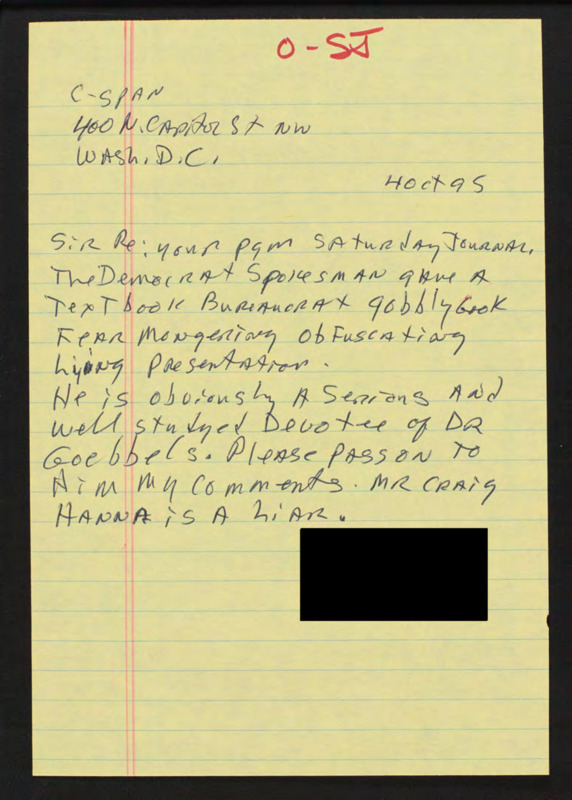 O-SJ
C-SPAN
400 N. CAPITOL St NW
WASh. D.C.
4 Oct 95
SiR Re: your pgm SATurdAy JOURNAL.
The DemocrAt SpokesmAN gAve A
TexTbook BureAucrAt gobblygook
FeAr MongeRiNg ObFuscAtiNg
LyiNg PreseNtAtioN.
He is obviously A Serious ANd
well studyed Devotee of DR
Goebbels. PleAse PAss oN To
Him My Comments. MR CRAig
HANNA is A LiAR.